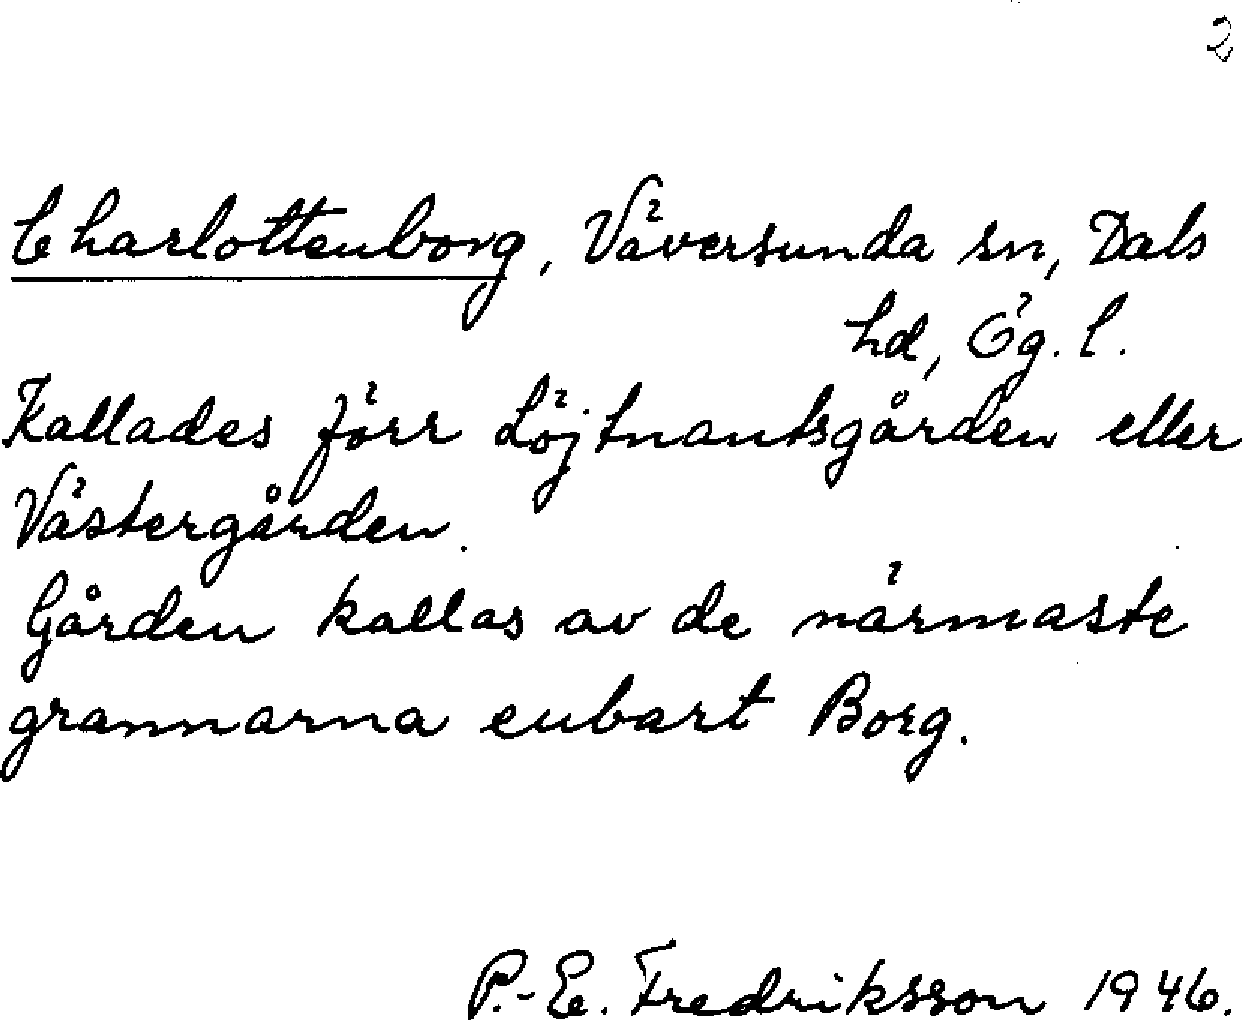 2
Charlottenborg, Väversunda sn, Dals
hd, Ög. l.
Kallades förr Löjtnantsgården eller
Västergården.
Gården kallas av de närmaste
grannarna enbart Borg.
P.-E. Fredriksson 1946.